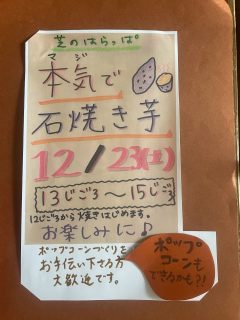 芝のはらっぱ
マジ
本気で
石焼き芋
12/23(土)
13じごろ〜15じごろ
12じごろから焼きはじめます。
お楽しみに♪
ポップコーンづくりを
お手伝い下さる方
大歓迎です。
ポップ
コーンも
できるかも?!